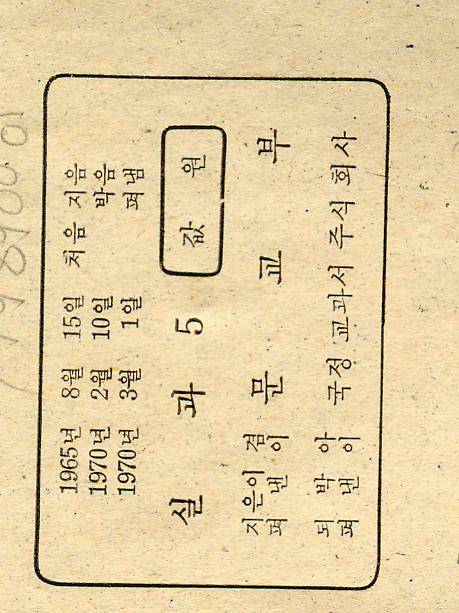 1965년 8월 15일 처음 지음
1970년 2월 10일 박음
1970년 3월 1일 펴냄
실 과 5 값 원
지은이 겸
펴 낸 이
문 교 부
되 박 아
펴 낸 이
국정 교과서 주식 회사